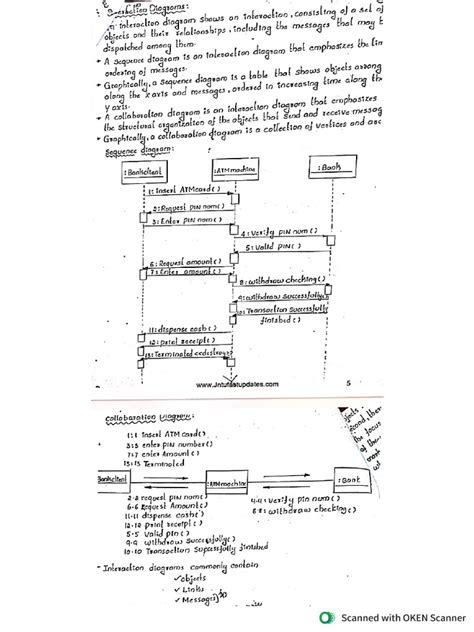 Interaction Diagrams:
An interaction diagram shows an interaction, consisting of a set of
objects and their relationships, including the messages that may
dispatched among them.
* A sequence diagram is an interaction diagram that emphasizes the
ordering of messages.
* Graphically, a sequence diagram is a table that shows objects
along the x axis and messages, ordered in increasing time along the
y axis.
* A collaboration diagram is an interaction diagram that emphasizes
the structural organization of the objects that send and receive
* Graphically, a collaboration diagram is a collection of vertices and arc
Sequence diagram:
:Bankclient
:ATM machine
:Bank
1: Insert ATM card()
2: Request PIN num()
3: Enter PIN num()
4: Verify PIN num()
5: Valid PIN()
6: Request amount()
7: Enter amount()
8: withdraw checking()
9: withdraw successfully
10: Transaction successfully
finished()
11: dispense cash()
12: print receipt()
13: Terminated
www.Jntufastupdates.com
5
Collaboration Diagram:
1:1 Insert ATM card()
3:3 enter PIN number()
7:7 enter Amount()
13:13 Terminated
Bankclient
:ATM machine
:Bank
2.2 request PIN num()
6.6 Request Amount()
11.11 dispense cash()
12.12 print receipt()
5.5 Valid PIN()
9.9 withdraw Successfully()
10.10 Transaction finished
4.4: verify PIN num()
8.8: withdraw checking()
* Interaction diagrams commonly contain
✓objects
✓ Links
✓ Messages
Scanned with OKEN Scanner